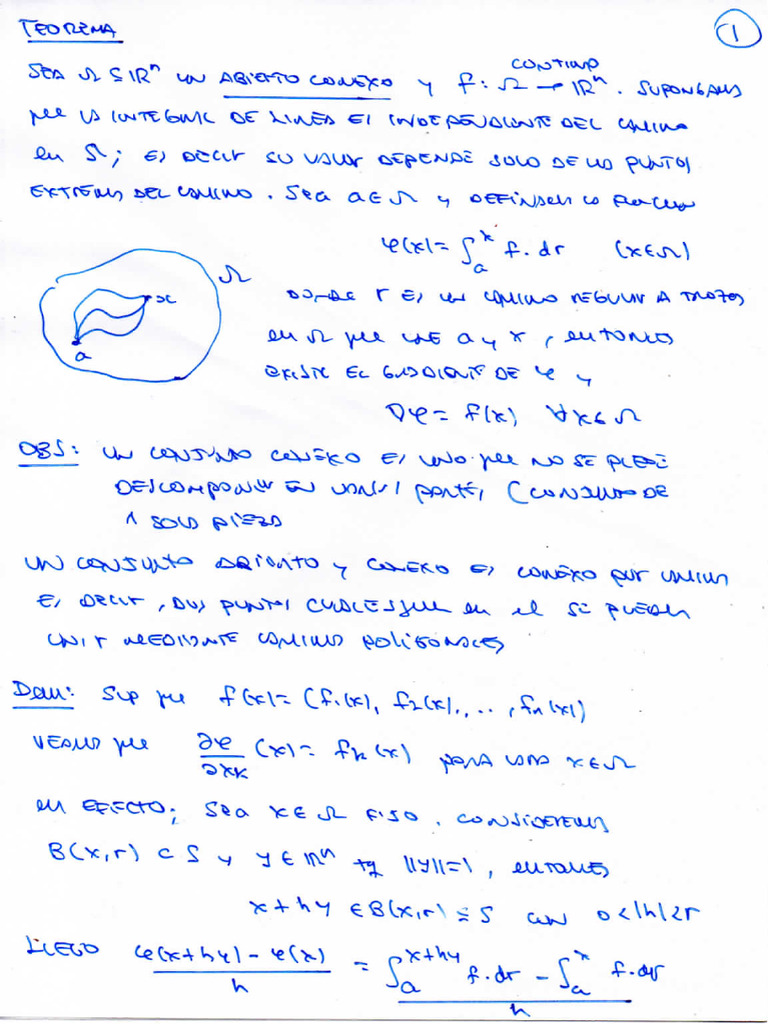 TEOREMA
①
SEA Ω ⊆ ℝⁿ UN ABIERTO CONEXO y f: Ω → ℝⁿ CONTINUO. SUPONGAMOS
que la INTEGRAL DE LINEA ES INDEPENDIENTE DEL CAMINO
en Ω; ES DECIR SU VALOR DEPENDE SOLO DE LOS PUNTOS
EXTREMOS DEL CAMINO. Sea a ∈ Ω y DEFINAMOS la función
φ(x) = ∫ₐˣ f. dr (x ∈ Ω)
Ω
x
a
DONDE r ES UN CAMINO REGULAR A TROZOS
en Ω que UNE a y x, ENTONCES
EXISTE EL GRADIENTE DE φ y
∇φ = f(x) ∀x ∈ Ω
OBS: UN CONJUNTO CONEXO ES UNO que NO SE PUEDE
DESCOMPONER EN VARIAS PARTES (CONJUNTO DE
1 SOLA PIEZA
UN CONJUNTO ABIERTO y CONEXO ES CONEXO POR CAMINOS
ES DECIR, DOS PUNTOS CUALESQUIERA en el SE PUEDEN
UNIR MEDIANTE CAMINOS POLIGONALES
Dem: Sup que f(x) = (f₁(x), f₂(x), ..., fn(x))
VEAMOS que ∂φ/∂xk (x) = fk(x) PARA CADA x ∈ Ω
en EFECTO; Sea x ∈ Ω FIJO. CONSIDEREMOS
B(x,r) ⊂ S y y ∈ ℝⁿ tq ||y||=1, ENTONCES
x + hy ∈ B(x,r) ⊆ S con 0<|h|<r
LUEGO (φ(x+hy) - φ(x))/h = (∫ₐˣ⁺ʰʸ f. dr - ∫ₐˣ f. dr)/h